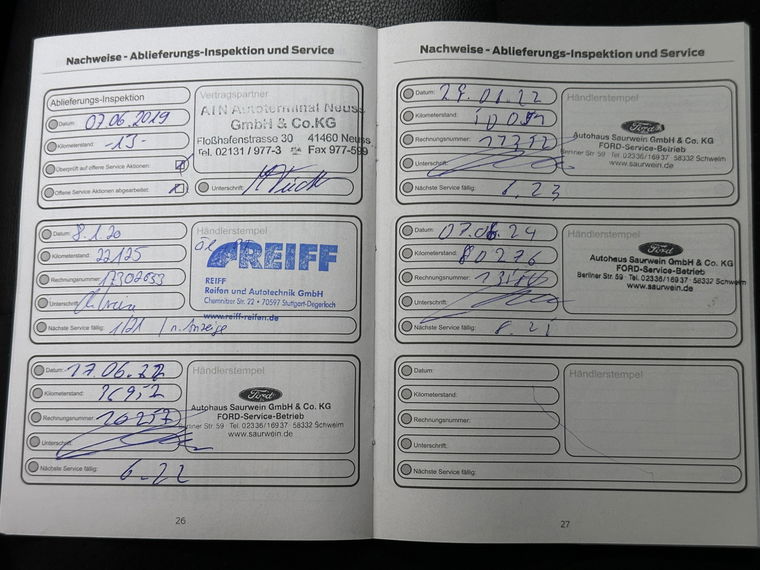 Nachweise - Ablieferungs-Inspektion und Service
Ablieferungs-Inspektion
Datum: 07.06.2019
Kilometerstand: -13-
Überprüft auf offene Service Aktionen:
Offene Service Aktionen abgearbeitet:
Vertragspartner
ATN Autoterminal Neuss
GmbH & Co.KG
Floßhafenstrasse 30 41460 Neuss
Tel. 02131 / 977-3 Fax 977-599
Unterschrift:
Datum: 8.1.20
Kilometerstand: 22125
Rechnungsnummer:
Unterschrift:
Nächste Service fällig: 1/21 / n. Anzeige
Händlerstempel
REIFF
REIFF
Reifen und Autotechnik GmbH
Chemnitzer Str. 22 • 70597 Stuttgart-Degerloch
www.reiff-reifen.de
Datum: 17.06.22
Kilometerstand:
Rechnungsnummer:
Unterschrift:
Nächste Service fällig: 6.22
Händlerstempel
Ford
Autohaus Saurwein GmbH & Co. KG
FORD-Service-Betrieb
Berliner Str. 59 Tel. 02336/16937 58332 Schwelm
www.saurwein.de
26
Nachweise - Ablieferungs-Inspektion und Service
Datum:
Kilometerstand:
Rechnungsnummer:
Unterschrift:
Nächste Service fällig: 8.23
Händlerstempel
Ford
Autohaus Saurwein GmbH & Co. KG
FORD-Service-Betrieb
Berliner Str. 59 Tel. 02336/16937 58332 Schwelm
www.saurwein.de
Datum:
Kilometerstand: 80276
Rechnungsnummer:
Unterschrift:
Nächste Service fällig: 8.25
Händlerstempel
Ford
Autohaus Saurwein GmbH & Co. KG
FORD-Service-Betrieb
Berliner Str. 59 Tel. 02336/16937 58332 Schwelm
www.saurwein.de
Datum:
Kilometerstand:
Rechnungsnummer:
Unterschrift:
Nächste Service fällig:
Händlerstempel
27